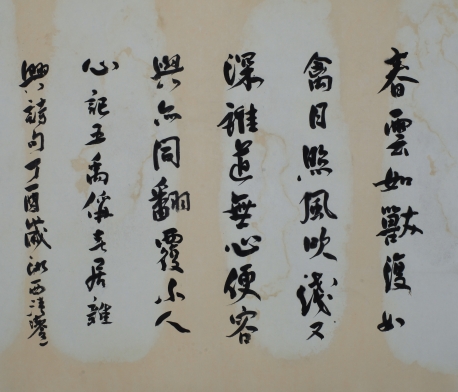 春雲如獸復如
禽日照風吹淺又
深誰道無心便容
與亦同翻覆小人
心記王禹偁春居雜
興詩句丁酉歲